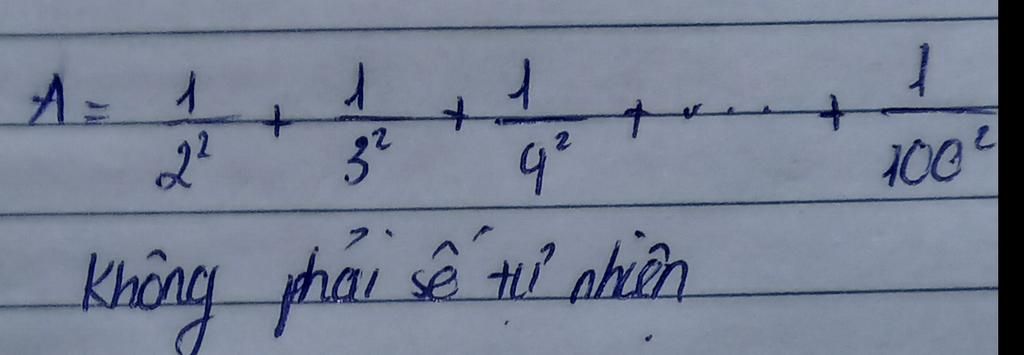 A = 1/2² + 1/3² + 1/4² + ..... + 1/100²
Không phải số tự nhiên